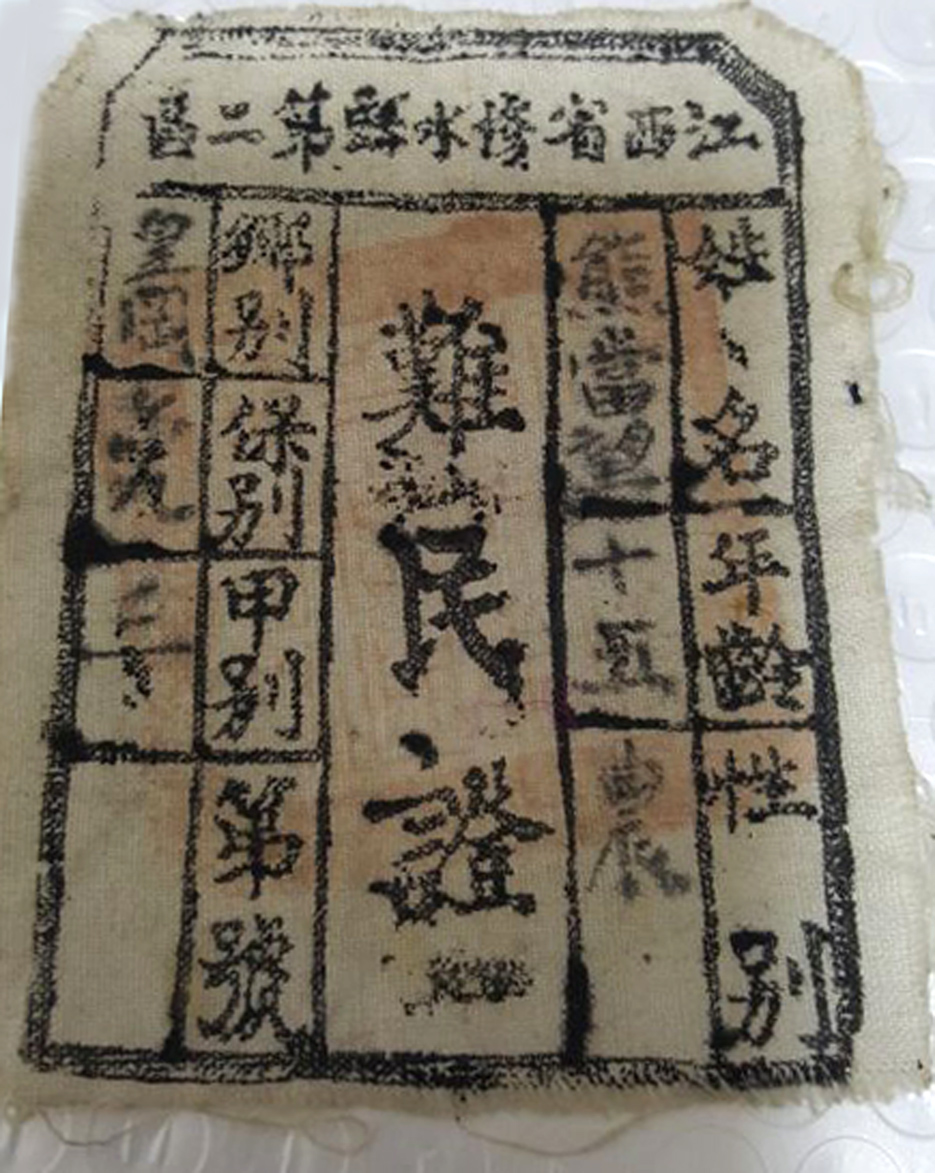 江西省修水縣第二區
姓名 熊當
年齡 十五
性別 農
難民證
鄉別
保別
甲別 三
第號